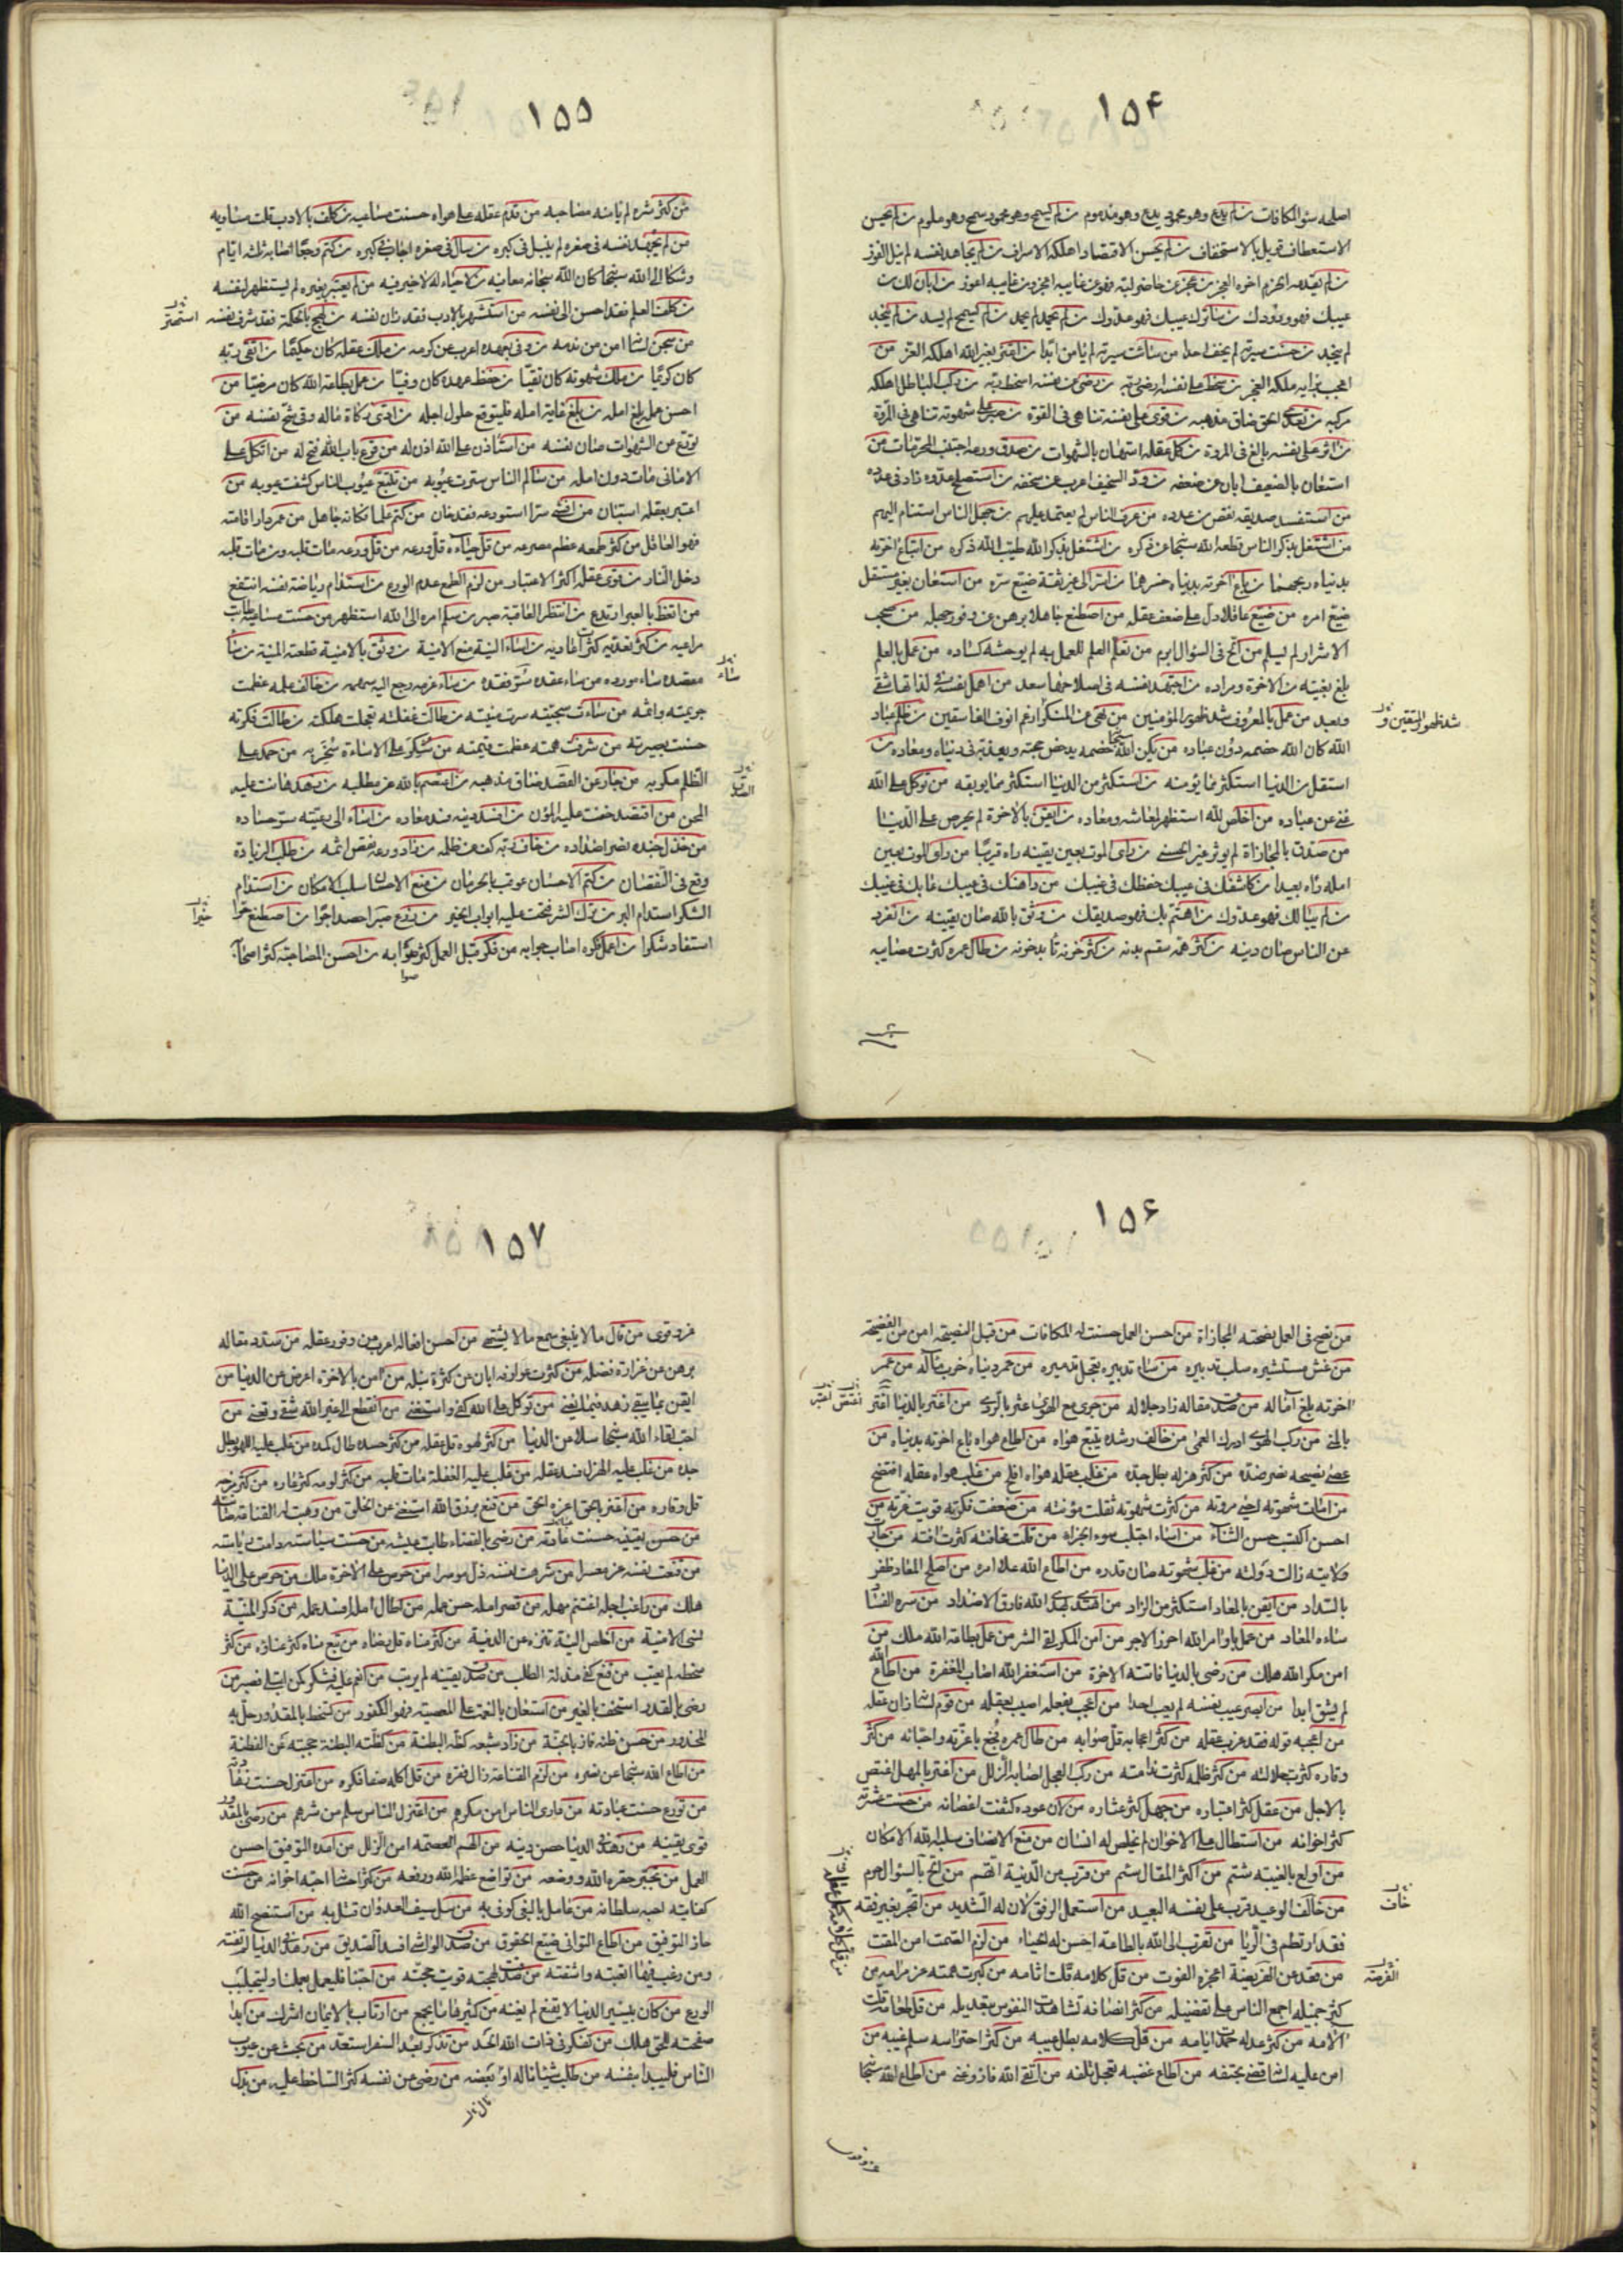 ۱۵۴
اصلحه سوء المكافات من لم يدع وهو محمود يدع وهو مذموم من لم يسمح وهو محمود سمح وهو ملوم من لم يحسن
الاستعطاف قوبل بالاستخفاف من لم يحسن الاقتصاد اهلكه الاسراف من لم يجاهد نفسه لم ينل الفوز
من لم يقدمه الحزم اخره العجز من عجز عن حاضر لبه فهو عن غايبه اعجز ومن غايبه اعوز من ابان لك عن
عيبك فهو ودودك من ساترك عيبك فهو عدوك من لم يحمد لم من لم يسمح لم يسد من لم ينجد
لم ينجد من حسنت سيرته لم يخف احدا من سائت سيرته لم يامن ابدا من اعتز بغير الله اهلكه العز من
اعجب برايه ملكه العجز من سخط على نفسه ارضى ربه من رضى عن نفسه اسخط ربه من ركب الباطل اهلكه
مركبه من تعدى الحق ضاق مذهبه من قوى على نفسه تناهى فى القوة من صبر على شهوته تناهى فى المروة
من اثر على نفسه بالغ فى المروة من كمل عقله استهان بالشهوات من صدق ورعه اجتنب المحرمات من
استعان بالضعيف ابان عن ضعفه من ود السخيف اعرب عن سخفه من استصلح عدوه زاد فى عدده
من استفسد صديقه نقص من عدده من عرف الناس لم يعتمد عليهم من جهل الناس استنام اليهم
من اشتغل بذكر الناس قطعه الله سبحا عن ذكره من اشتغل بذكر الله طيب الله ذكره من ابتاع اخرته
بدنياه ربحهما من باع اخرته بدنياه خسرهما من اسر الى غير ثقة ضيع سره من استعان بغير مستقل
ضيع امره من ضيع عاقلا دل على ضعف عقله من اصطنع جاهلا برهن عن وفور جهله من صحب
الاشرار لم يسلم من الح فى السؤال ابرم من تعلم العلم للعمل به لم يوحشه كساده من عمل بالعلم
بلغ بغيته من الاخرة ومراده من اجتهد نفسه فى اصلاحها سعد من اهمل نفسه فى لذاتها شقى
وبعد من عمل بالمعروف شد ظهور المؤمنين من نهى عن المنكر ارغم انوف الفاسقين من ظلم عباد
الله كان الله خصمه دون عباده من يكن الله سبحا خصمه يدحض حجته ويعذبه فى دنياه ومعاده من
استقل من الدنيا استكثر مما يؤمنه من استكثر من الدنيا استكثر مما يوبقه من توكل على الله
غنى عن عباده من اخلص لله استظهر لمعاشه ومعاده من ايقن بالاخرة لم يحرص على الدنيا
من صدق بالمجازاة لم يؤثر غير الحسنى من راى الموت بعين يقينه راه قريبا من راى الموت بعين
امله راه بعيدا من كاشفك فى عيبك حفظك فى غيبك من داهنك فى عيبك عابك فى غيبك
من لم يبالك فهو عدوك من اهتم بك فهو صديقك من وثق بالله صان يقينه من انفرد
عن الناس صان دينه من كثر همه سقم بدنه من كثر حزنه من طال عمره كثرت مصايبه
شد ظهور المتقين
۱۵۵
من كثر شره لم يامنه مصاحبه من قدم عقله على هواه حسنت مساعيه من كلف بالادب قلت مساويه
من لم يجهد نفسه فى صغره لم ينبل فى كبره من سال فى صغره اجاب فى كبره من كتم وجعا اصابه ثلثه ايام
وشكا الى الله سبحا كان الله سبحانه معافيه من لا حياء له لا خير فيه من لم يعتبر بغيره لم يستظهر لنفسه
من كلف بالعلم فقد احسن الى نفسه من استشهر بالادب فقد زان نفسه من لهج بالحكمة فقد شرف نفسه
من سجن لسانه امن من ندمه من وفى بعهده اعرب عن كرمه من ملك عقله كان حكيما من اتقى ربه
كان كريما من ملك شهوته كان تقيا من حفظ عهده كان وفيا من عمل بطاعة الله كان مرضيا من
احسن عمله بلغ امله من بلغ غاية امله فليتوقع حلول اجله من ادى زكاة ماله وقى شح نفسه من
تورع عن الشهوات صان نفسه من استاذن على الله اذن له من قرع باب الله فتح له من اتكل على
الامانى مات دون امله من سالم الناس سترت عيوبه من تتبع عيوب الناس كشفت عيوبه من
اعتبر بعقله استبان من افشى سرا استودعه فقد خان من كتم علما فكانه جاهل من عمر دار اقامته
فهو العاقل من كثر طمعه عظم مصرعه من قل حياءه قل ورعه من قل ورعه مات قلبه ومن مات قلبه
دخل النار من قوى عقله اكثر الاعتبار من لزم الطمع عدم الورع من استدام رياضة نفسه انتفع
من اتعظ بالعبر ارتدع من انتظر العاقبة صبر من سلم امره الى الله استظهر من حسنت مساعيه طابت
مراعيه من كثر تعديه كثرت اعاديه من اساء النية منع الامنية من وثق بالامنية قطعته المنية من ساء
مقصده ساء مورده من ساء عقده سر فقده من ساء عزمه رجع اليه سهمه من خالف علمه عظمت
جريمته واثمه من ساءت سجيته سرت منيته من طالت غفلته تعجلت هلكته من طالت فكرته
حسنت بصيرته من شرفت همته عظمت قيمته من شكر على الاساءة سخر به من حمد على
الظلم مكر به من جار عن القصد ضاق مذهبه من اعتصم بالله عز مطلبه من زهد هانت عليه
المحن من اقتصد خفت عليه المؤن من افسد دينه فسد معاده من اساء الى رعيته سر حساده
من خذل جنده نصر اضداده من خاف ربه كف عن ظلمه من زاد ورعه نقص اثمه من طلب الزيادة
وقع فى النقصان من كتم الاحسان عوقب بالحرمان من منع الاحسان سلب الامكان من استدام
الشكر استدام البر من ترك الشر فتحت عليه ابواب الخير من زرع صبرا حصد اجرا من اصطنع حرا
استفاد شكرا من اعمل فكره اصاب جوابه من فكر قبل العمل كثر صوابه من احسن المصاحبة كثر اصحابه
خيرا
۱۵۶
من نصح فى العمل نصحته المجازاة من احسن العمل حسنت له المكافات من قبل النصيحة امن من الفضيحة
من غش مستشيره سلب تدبيره من ساء تدبيره تعجل تدميره من عمر دنياه خرب ماله من عمر
اخرته بلغ آماله من صدق مقاله زاد جلاله من جرى مع الهوى عثر بالردى من اغتر بالدنيا اغتر
بالمنى من ركب الهوى ادرك العمى من خالف رشده يتبع هواه من اطاع هواه باع اخرته بدنياه من
عصى نصيحه نصر ضده من كثر هزله بطل جده من غلب عقله هواه افلح من غلب هواه عقله افتضح
من امات شهوته احيى مروته من كثرت شهوته ثقلت مؤنته من ضعفت فكرته قويت غرته من
احسن اكتسب حسن الثناء من اساء اجتلب سوء الجزاء من قلت مخافته كثرت افته من جار فى
ولايته زالت دولته من غلب شهوته صان قدره من اطاع الله علا امره من اصلح المعاد ظفر
بالسداد من ايقن بالمعاد استكثر من الزاد من اهتدى بهدى الله فارق الاضداد من سره الفساد
ساءه المعاد من عمل باوامر الله احرز الاجر من امن المكر لقى الشر من عمل بطاعة الله ملك من
امن مكر الله هلك من رضى بالدنيا فاتته الاخرة من استغفر الله اصاب المغفرة من اطاع الله
لم يشق ابدا من ابصر عيب نفسه لم يعب احدا من اعجب بفعله اصيب بعقله من قوم لسانه زان عقله
من اعجبه قوله فقد عزب عقله من كثر اعجابه قل صوابه من طال عمره فجع باعزته واحبائه من كثر
وقاره كثرت جلالته من كثر ظلمه كثرت ندامته من ركب العجل اصابه الزلل من اغتر بالمهل اغتص
بالاجل من عقل كثر اعتباره من جهل كثر عثاره من لان عوده كثفت اغصانه من حسنت عشرته
كثر اخوانه من استطال على الاخوان لم يخلص له انسان من منع الانصاف سلبه الله الامكان
من اولع بالغيبة شتم من اكثر المقال سئم من قرب من الدنية اتهم من الح بالسؤال حرم
من خالف الوعيد قرب على نفسه البعيد من استعمل الرفق لان له الشديد من اتجر بغير فقه
فقد ارتطم فى الربا من تقرب الى الله بالطاعة احسن له الحباء من لزم الصمت امن المقت
من قعد عن الفريضة اعجزه الفوت من قل كلامه قلت اثامه من كبرت همته عز مرامه من
كثر جميله اجمع الناس على تفضيله من كثر انصافه تشاهدت النفوس بتعديله من قل طعامه قلت
آلامه من كثر عدله حمدت ايامه من قل كلامه بطل عيبه من كثر احتراسه سلم غيبه من
امن عليه لسانه قضى بحتفه من اطاع غضبه تعجل تلفه من اتقى الله فاز وغنى من اطاع الله سبحا
خاف
الفرصة
۱۵۷
عز وقوى من قال ما لا ينبغى سمع ما لا يشتهى من احسن افعاله اعرب عن وفور عقله من سدد مقاله
برهن عن غزارة فضله من كثرت عوارفه ابان عن كثرة نبله من امن بالاخرة اعرض عن الدنيا من
ايقن بما يبقى زهد فيما يفنى من توكل على الله كفى واستغنى من انقطع الى غير الله شقى وتعنى من
احب لقاء الله سبحا سلا من الدنيا من كثر لهوه قل عقله من كثر حسده طال كمده من غلب عليه اللهو بطل
جده من غلب عليه الهزل فسد عقله من غلب عليه الغفلة مات قلبه من كثر لومه كثر عاره من كثر مزحه
قل وقاره من اعتز بالحق اعزه الحق من قنع برزق الله استغنى عن الخلق من وهبت له القناعة صانته
من حسن يقينه حسنت عبادته من رضى بالقضاء طابت عيشه من حسنت سياسته دامت رياسته
من قنعت نفسه عز معسرا من شرهت نفسه ذل موسرا من حرص على الاخرة ملك من حرص على الدنيا
هلك من راقب اجله اغتنم مهله من قصر امله حسن عمله من اطال امله افسد عمله من ذكر المنية
نسى الامنية من اخلص النية تنزه عن الدنية من كثر مناه قل رضاه من تبع مناه كثر عناؤه من كثر
سخطه لم يعتب من قنع كفى مذلة الطلب من صدق يقينه لم يرتب من انعم عليه فشكر كمن ابتلى فصبر من
رضى بالقدر استخف بالغير من استعان بالنعمة على المعصية فهو الكفور من تسخط بالمقدور حل به
المحذور من حسن ظنه فاز بالجنة من زاد شبعه كظته البطنة من كظته البطنة حجبته عن الفطنة
من اطاع الله سبحا عز نصره من لزم القناعة زال فقره من قل اكله صفا فكره من اعتزل حسنت
من تورع حسنت عبادته من دارى الناس امن مكرهم من اعتزل الناس سلم من شرهم من رضى بالمقدور
قوى يقينه من زهد فى الدنيا حصن دينه من الهم العصمة امن الزلل من امده التوفيق احسن
العمل من تجبر حقره الله ووضعه من تواضع عظمه الله ورفعه من كثر احسانه احبه اخوانه من حسنت
كفايته احبه سلطانه من عامل بالبغى كوفى به من سل سيف العدوان قتل به من استنصح الله
حاز التوفيق من اطاع التوانى ضيع الحقوق من صدق الواشى افسد الصديق من زهد فى الدنيا لم تفته
ومن رغب فيها اتعبته واشقته من صدقت لهجته قويت حجته من احبنا فليعمل بعملنا وليتجلبب
الورع من كان بيسير الدنيا لا يقنع لم يغنه من كثيرها ما يجمع من ارتاب بالايمان اشرك من ابدى
صفحته للحق هلك من تفكر فى ذات الله الحد من تذكر بعد السفر استعد من بحث عن عيوب
الناس فليبدا بنفسه من طلب شيئا ناله او بعضه من رضى عن نفسه كثر الساخط عليه من بذل